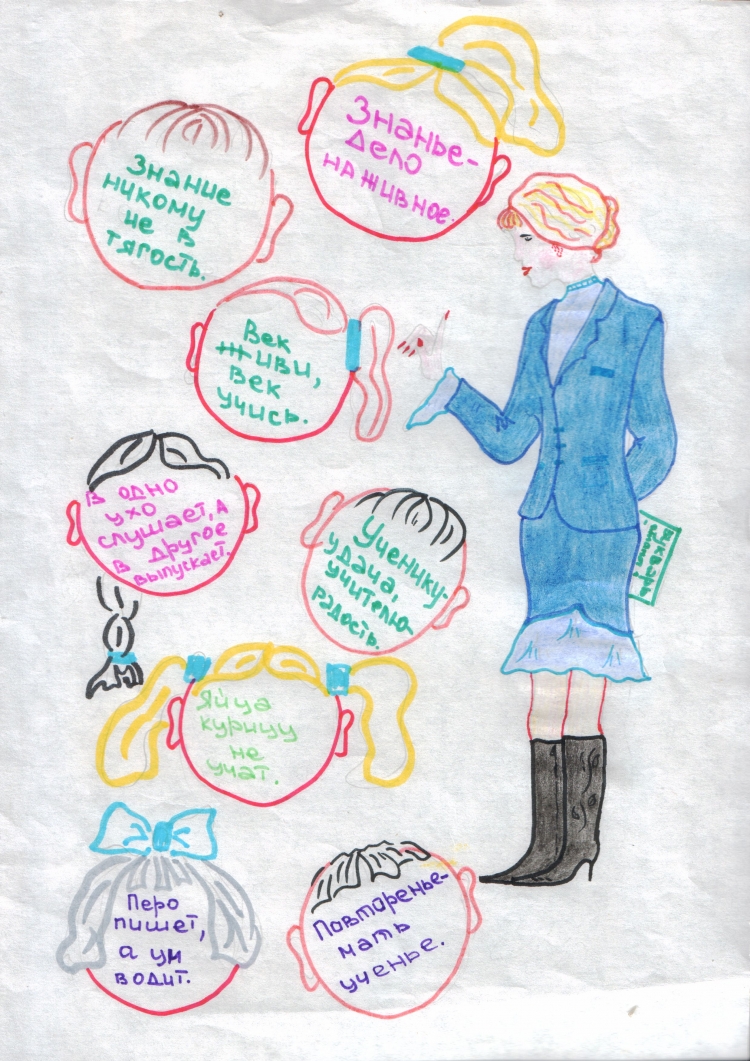 Знанье-
дело
наживное.
Знание
никому
не в
тягость.
Век
живи,
век
учись.
В одно
ухо
слушает, а
в другое
выпускает.
Ученику-
удача,
учителю-
радость.
Букварь
Яйца
курицу
не
учат.
Перо
пишет,
а ум
водит.
Повторенье-
мать
ученье.